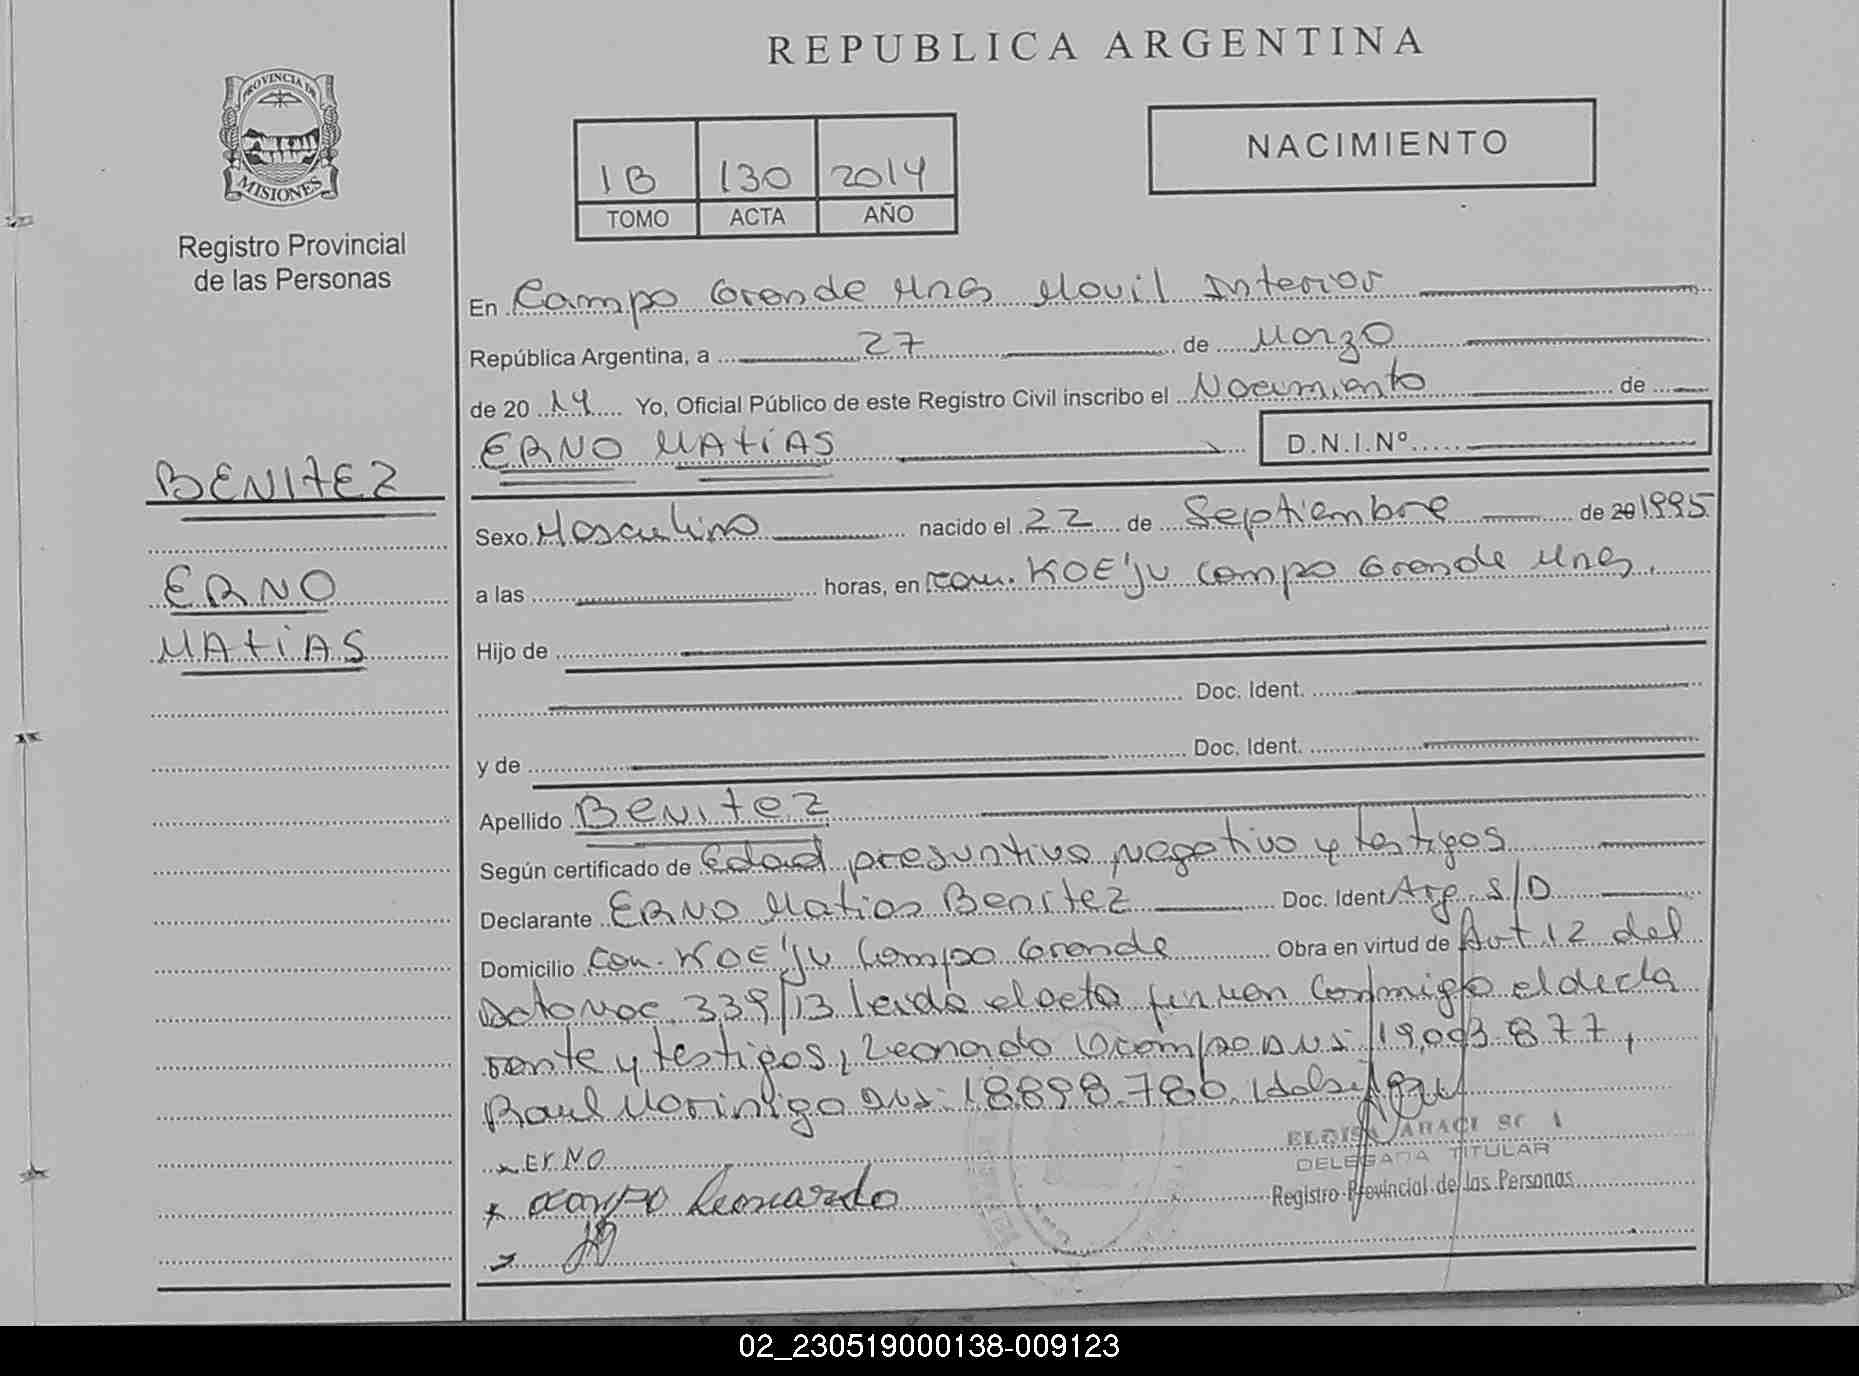 REPUBLICA ARGENTINA
PROVINCIA DE
MISIONES
Registro Provincial
de las Personas
1B 130 2014
TOMO ACTA AÑO
NACIMIENTO
En Campo Grande Mnes Movil Interior
República Argentina, a 27 de Marzo
de 2014 Yo, Oficial Público de este Registro Civil inscribo el Nacimiento de
ERNO MATIAS D.N.I.Nº
BENITEZ
ERNO
MATIAS
Sexo Masculino nacido el 22 de Septiembre de 20 1995
a las horas, en com. KOE'JU Campo Grande Mnes.
Hijo de
Doc. Ident.
y de Doc. Ident.
Apellido Benitez
Según certificado de Edad presuntiva negativo y testigos
Declarante Erno Matias Benitez Doc. Ident Arg. S/D
Domicilio Com. KOE'JU Campo Grande Obra en virtud de Art 12 del
339/13 leida el acta firman Conmigo el decla
rante y testigos, Leonardo Ocampo DNI: 19,093.877,
Raul Morinigo DNI: 18898.780
x ErNO
x ocampo Leonardo
DELEGADA TITULAR
Registro Provincial de las Personas
02_230519000138-009123